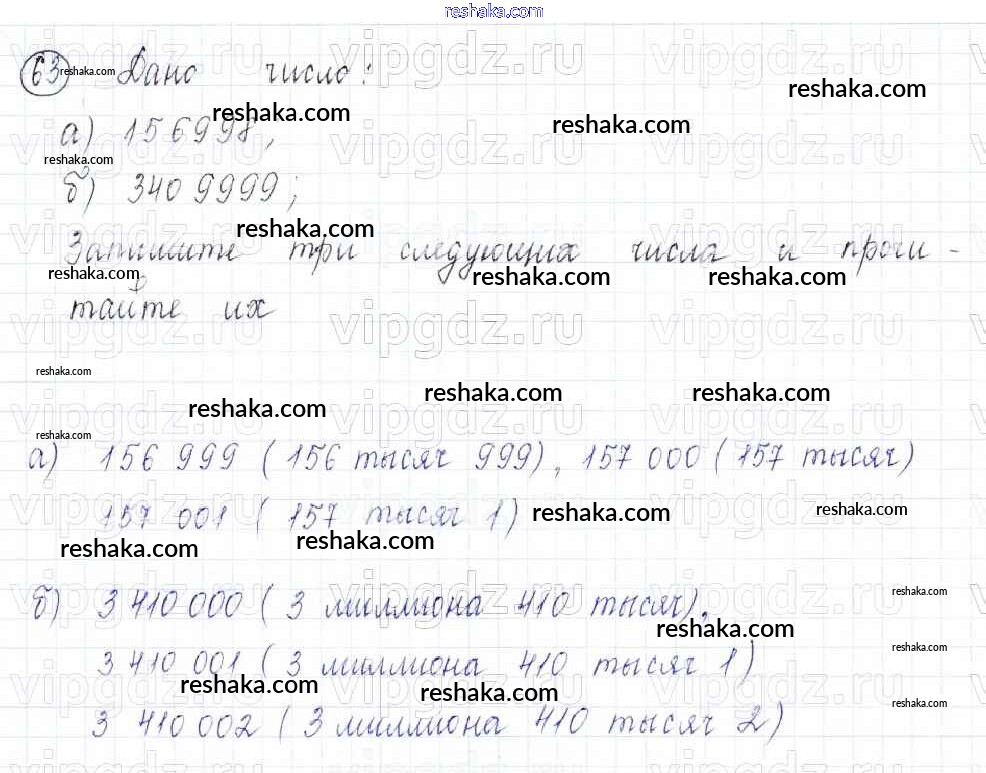 reshaka.com
63 Дано число:
а) 156998,
б) 3409999;
Запишите три следующих числа и прочи-
тайте их
а) 156 999 (156 тысяч 999), 157 000 (157 тысяч)
157 001 (157 тысяч 1)
б) 3 410 000 (3 миллиона 410 тысяч),
3 410 001 (3 миллиона 410 тысяч 1)
3 410 002 (3 миллиона 410 тысяч 2)
vipgdz.ru